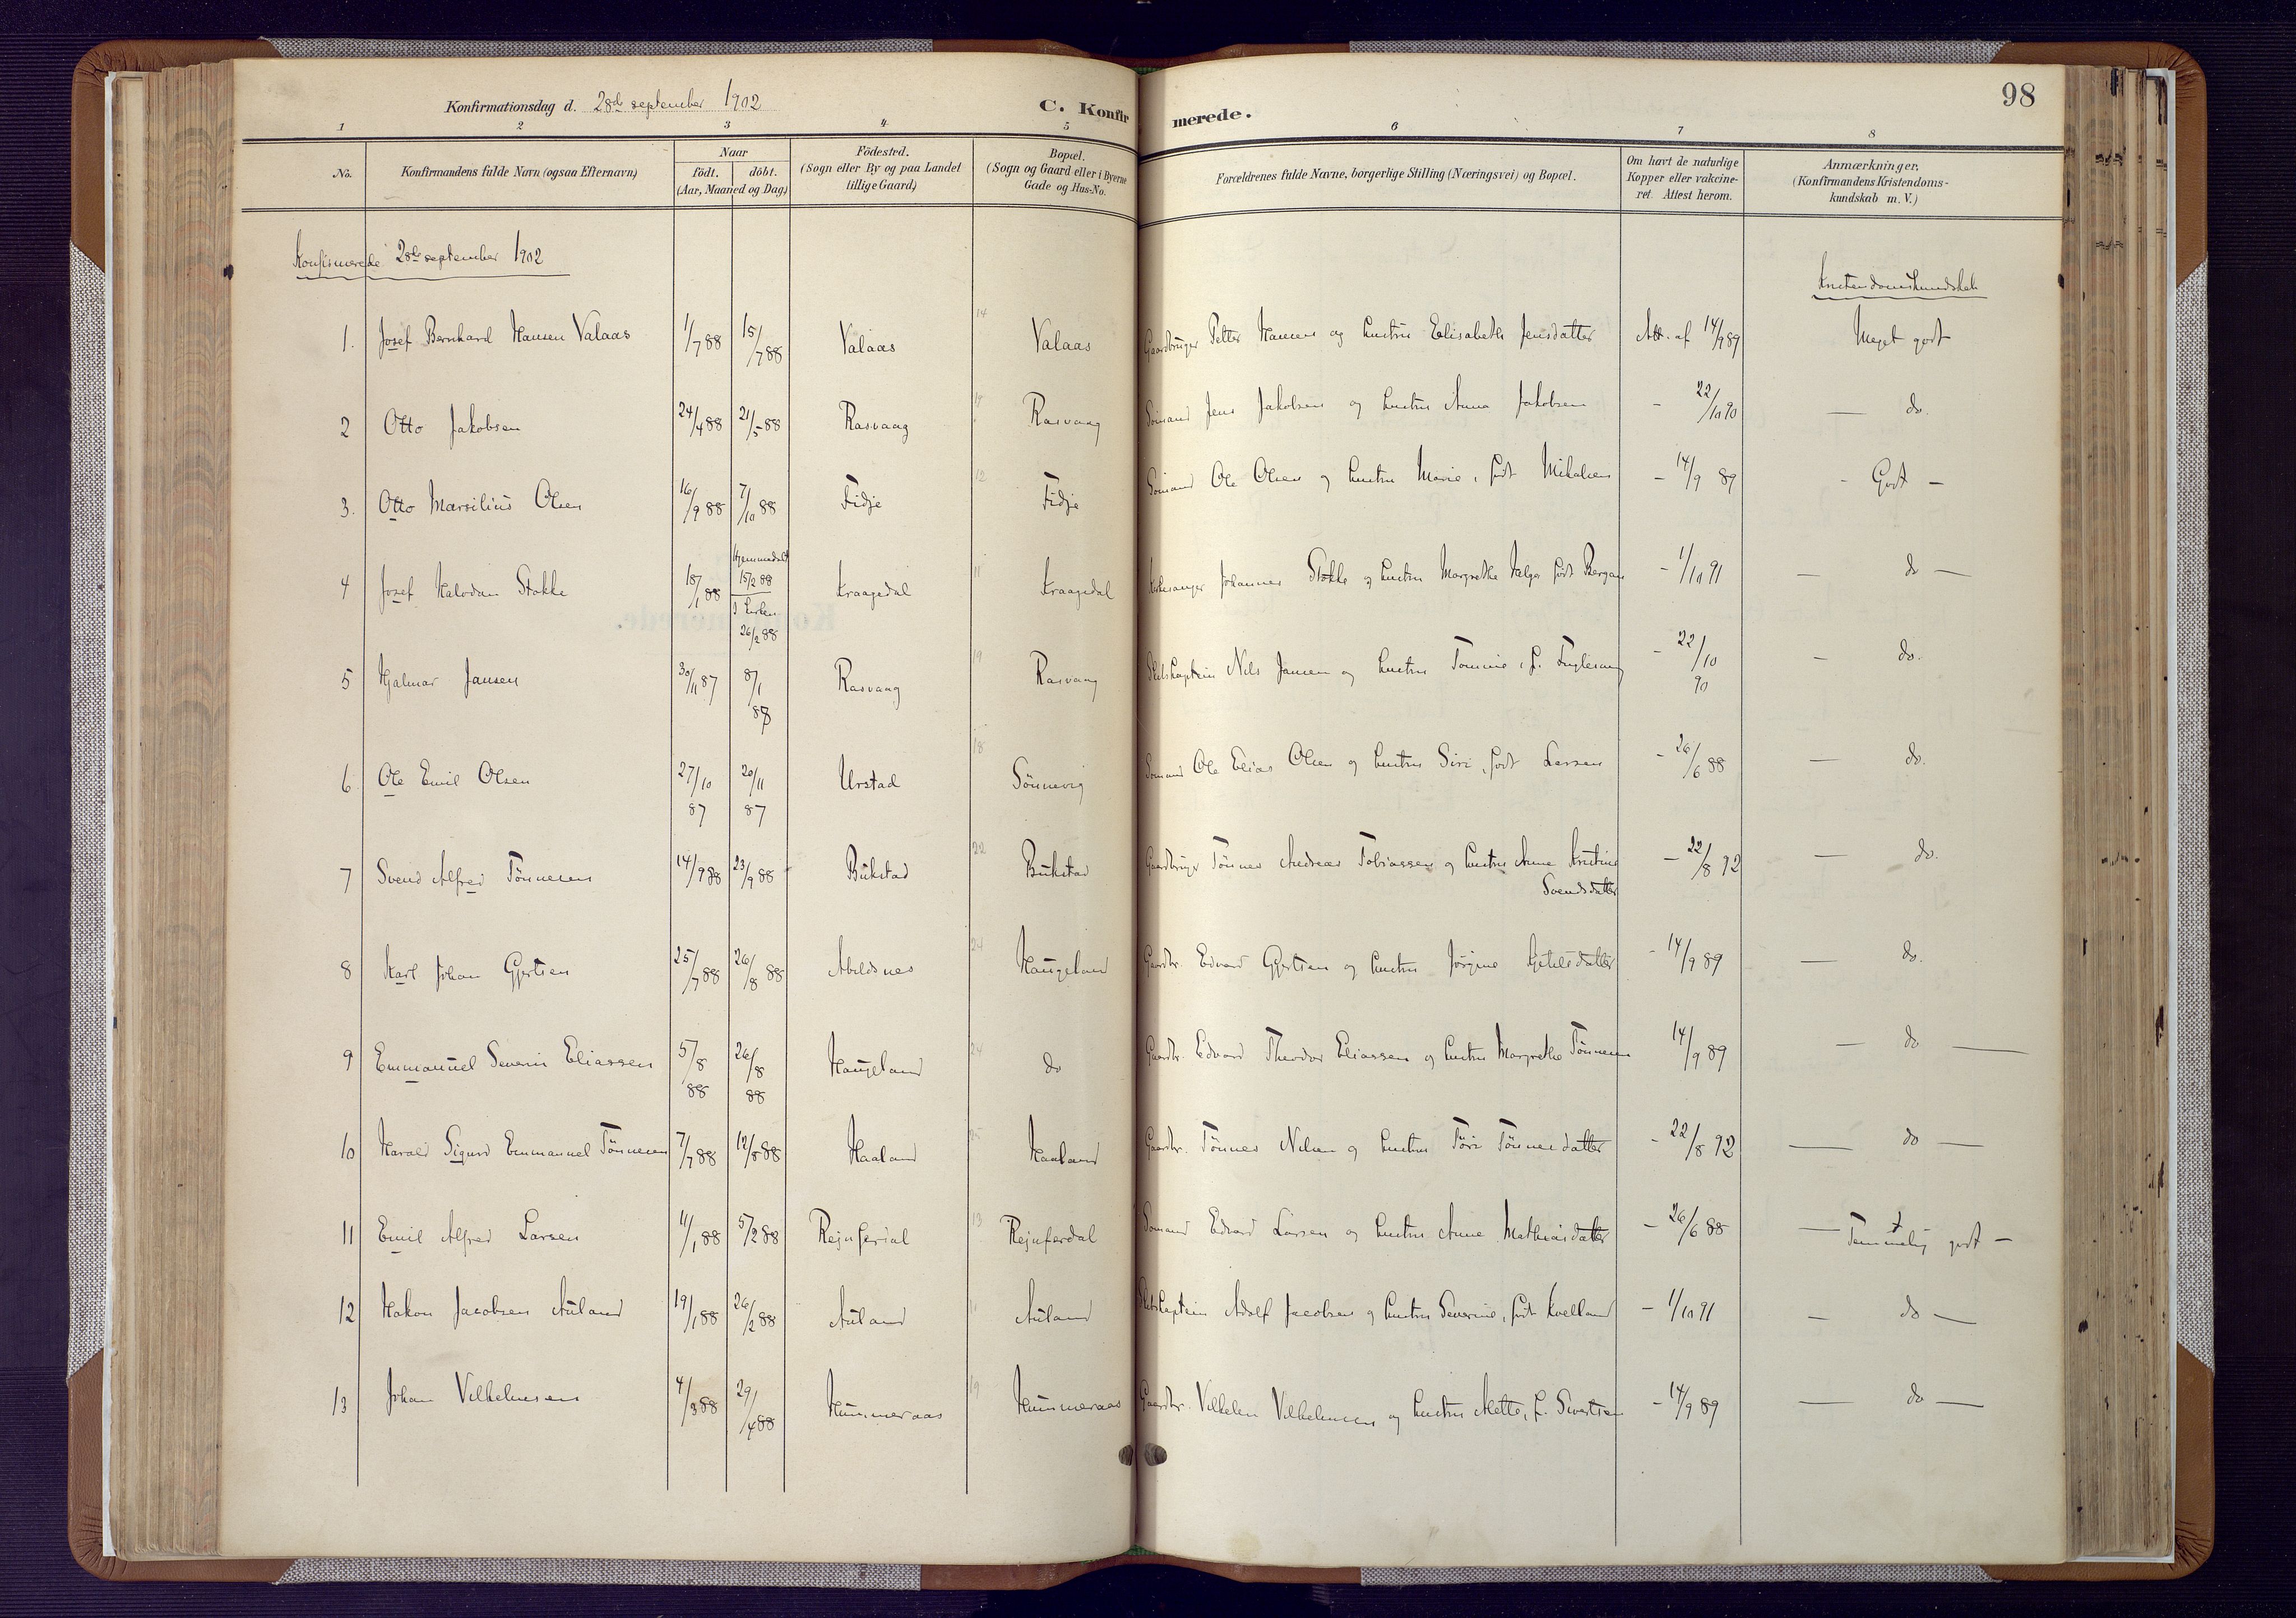 98
Konfirmationsdag d. 28de september 1902
C. Konfirmerede.
1 2 3 4 5 6 7 8
No. Konfirmandens fulde Navn (ogsaa Efternavn) Naar födt. döbt. (Aar, Maaned og Dag) Födested. (Sogn eller By og paa Landet tillige Gaard) Bopæl. (Sogn og Gaard eller i Byerne Gade og Hus-No. Forældrenes fulde Navne, borgerlige Stilling (Næringsvei) og Bopæl. Om havt de naturlige Kopper eller vakcineret. Attest herom. Anmærkninger. (Konfirmandens Kristendomskundskab m. V.)
Konfirmerede 28de september 1902
Kristendomskundskab
1. Josef Bernhard Hansen Valaas 1/7 88 15/7 88 Valaas 14 Valaas Gaardbruger Petter Hansen og hustru Elisabeth Jensdatter Att. af 14/9 89 Meget godt
2 Otto Jakobsen 24/4 88 21/5 88 Rasvaag Rasvaag Sömand Jens Jakobsen og hustru Anna Jakobsen - 22/10 90 — do.
3. Otto Marsilius Olsen 16/9 88 7/10 88 Fidje 12 Fidje Sömand Ole Olsen og hustru Marie, født Mikalsen - 14/9 89 - Godt -
4 Josef Halvdan Stokke 18/1 88 Hjemmedøbt 15/2 88 I Kirken 26/2 88 Kraagedal 11 Kraagedal Kirkesanger Johannes Stokke og hustru Margrethe Helga født Bergan - 1/10 91 — do —
5 Hjalmar Jansen 30/11 87 8/1 88 Rasvaag 19 Rasvaag Skibskaptein Nils Jansen og hustru Tomine, f. - 22/10 90 — do.
6 Ole Emil Olsen 27/10 87 20/11 87 Urstad 18 Sönnevig Sömand Ole Elias Olsen og hustru Siri, født Larsen - 26/6 88 — do.
7 Svend Alfred Tönnesen 14/9 88 23/9 88 Bukstad 22 Bukstad Gaardbruger Tönnes Andreas Tobiassen og hustru Anne Kristine
Svendsdatter - 22/8 92 — do.
8 Karl Johan Gjertsen 25/7 88 26/8 88 Abelsnes 24 Haugeland Gaardbr. Edvard Gjertsen og hustru Jörgine - 14/9 89 — do.
9 Emmanuel Severin Eliassen 5/8 88 26/8 88 Haugeland 24 do Gaardbr. Edvard Theodor Eliassen og hustru Margrethe Tönnesen 14/9 89 — do —
10 Harald Sigurd Emmanuel Tönnesen 7/7 88 12/8 88 Haaland 25 Haaland Gaardbr. Tönnes Nilsen og hustru Tönnesdatter - 22/8 92 — do —
11 Emil Alfred Larsen 11/1 88 5/2 88 Rejnferdal 13 Rejnferdal Sömand Edvard Larsen og hustru Anne Mathiasdatter - 26/6 88 — Temmelig godt —
12 Hakon Jacobsen Auland 19/1 88 26/2 88 Auland 11 Auland Skibskaptein Adolf Jacobsen og hustru Severine, født Kvelland - 1/10 91 — do —
13 Johan Vilhelmsen 4/3 88 29/4 88 Hummeraas 19 Hummeraas Gaardbr. Vilhelm Vilhelmsen og hustru Mette, f. Sivertsen - 14/9 89 — do —